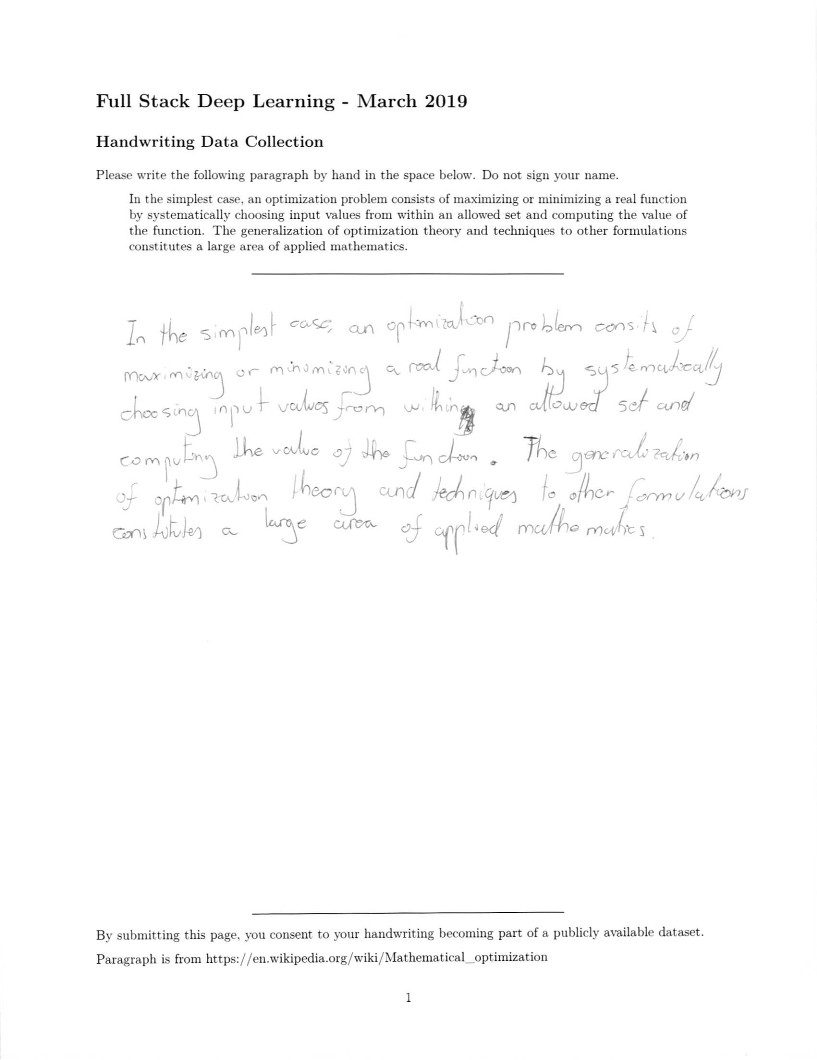 Full Stack Deep Learning - March 2019
Handwriting Data Collection
Please write the following paragraph by hand in the space below. Do not sign your name.
In the simplest case, an optimization problem consists of maximizing or minimizing a real function
by systematically choosing input values from within an allowed set and computing the value of
the function. The generalization of optimization theory and techniques to other formulations
constitutes a large area of applied mathematics.
In the simplest case, an optimization problem consits of
maximizing or minimizing a real function by systematically
choosing input values from within an allowed set and
computing the value of the function. The generalization
of optimization theory and techniques to other formulations
constitutes a large area of applied mathematics.
By submitting this page, you consent to your handwriting becoming part of a publicly available dataset.
Paragraph is from https://en.wikipedia.org/wiki/Mathematical_optimization
1